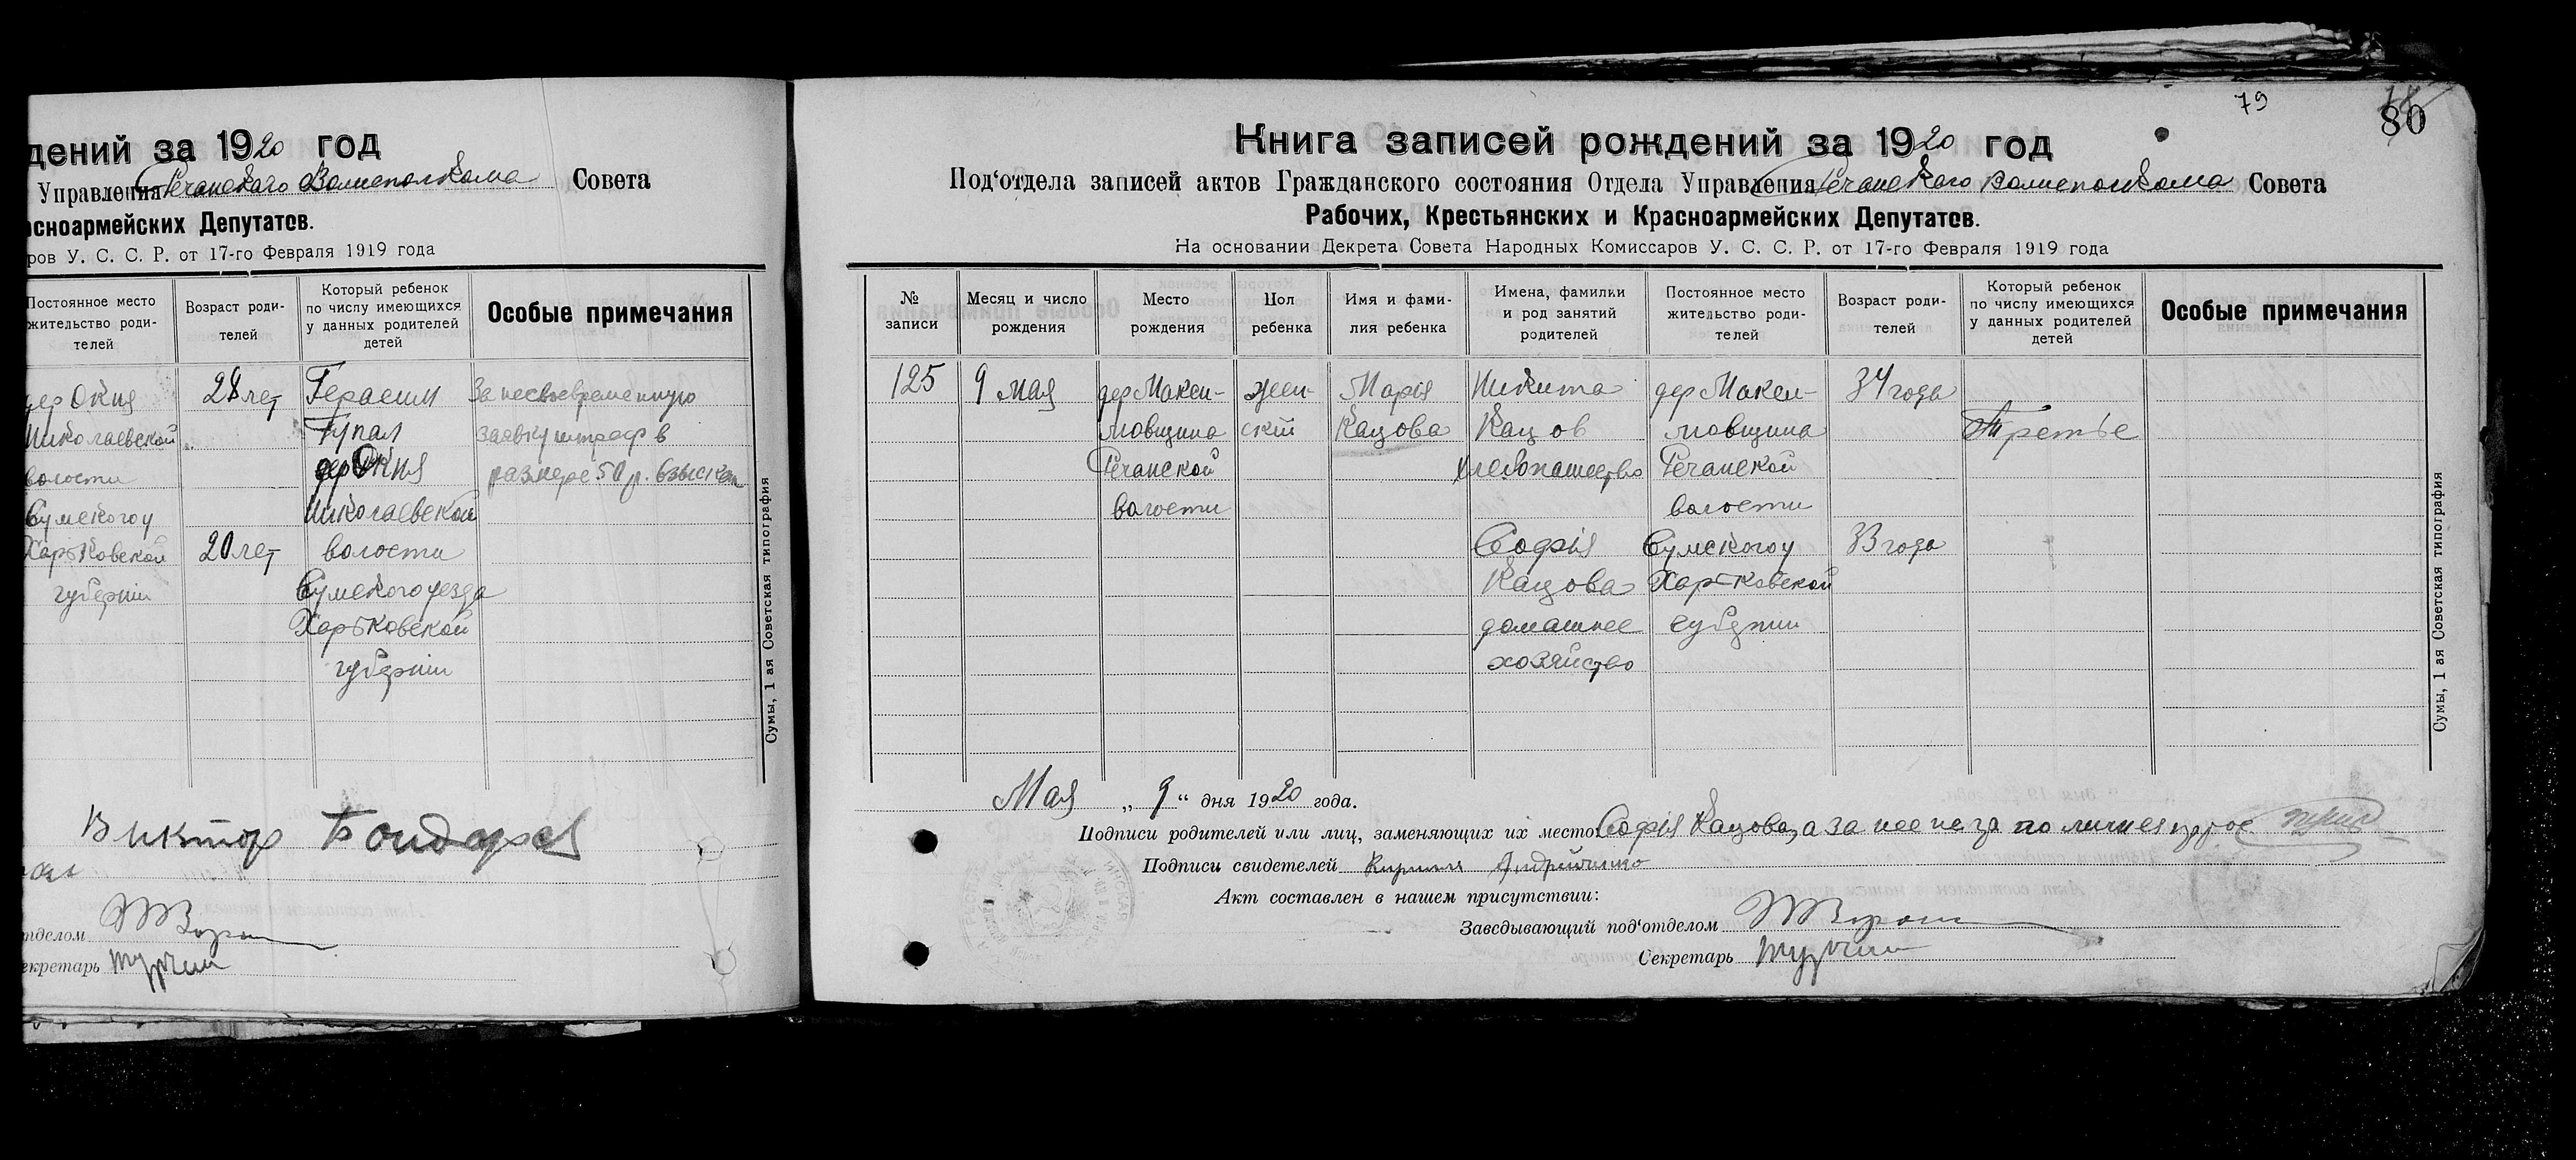 дений за 1920 год
Управления Речанского Волисполкома Совета
сноармейских Депутатов.
ров У. С. С. Р. от 17-го Февраля 1919 года
Постоянное место жительство роди-телей
Возраст роди-телей
Который ребенок по числу имеющихся у данных родителей детей
Особые примечания
дер Окня
Николаевской
волости
Сумского у
Харьковской
губернии
28 лет
20 лет
Герасим
Тупал
дер Окня
Николаевской
волости
Сумского уезда
Харьковской
губернии
За несвоевременную
заявку штраф в
размере 50 р. взыскан
Сумы, 1 ая Советская типография
Виктор Бондар
тделом
екретарь
79
80
Книга записей рождений за 1920 год
Под‘отдела записей актов Гражданского состояния Отдела Управления Речанского Волисполкома Совета
Рабочих, Крестьянских и Красноармейских Депутатов.
На основании Декрета Совета Народных Комиссаров У. С. С. Р. от 17-го Февраля 1919 года
№ записи
Месяц и число рождения
Место рождения
Пол ребенка
Имя и фами-лия ребенка
Имена, фамилки и род занятий родителей
Постоянное место жительство роди-телей
Возраст роди-телей
Который ребенок по числу имеющихся у данных родителей детей
Особые примечания
125
9 мая
дер Макси-
мовщина
Речанской
волости
жен-
скій
Марія
Кацова
Никита
Кацов
хлебопашество
Софія
Кацова
домашнее
хозяйство
дер Макси-
мовщина
Речанской
волости
Сумского у
Харьковской
губернии
34 года
33 года
Третье
Сумы, 1 ая Советская типография
Мая „ 9 “ дня 1920 года.
Подписи родителей или лиц, заменяющих их место: Софія Кацова, а за нее негр по личной прос
Подписи свидетелей Кирилл Андрійченко
Акт составлен в нашем присутствии:
Заведывающий под‘отделом
Секретарь